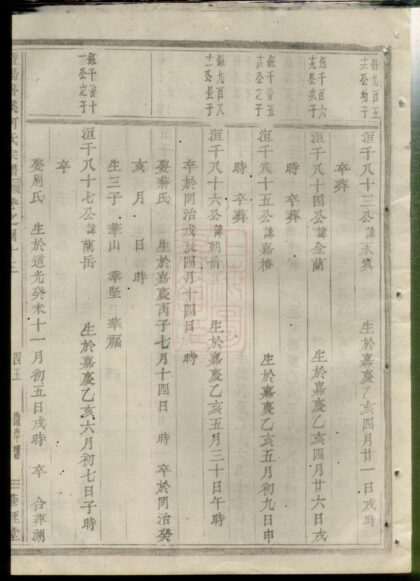 鉅九百五
六公幼子
洹千八十三公諱永 生於嘉慶乙亥四月廿一日戌時
卒葬
鉅千百六
克公次子
洹千八十四公諱金蘭 生於嘉慶乙亥四月廿六日戌
時 卒葬
鉅千百五
吉公之子
洹千八十五公諱嘉椿 生於嘉慶乙亥五月初九日申
時 卒葬
鉅九百八
十二公長子
洹千八十六公諱朝岳 生於嘉慶乙亥五月三十日午時
卒於同治戊辰四月十四日 時
娶 氏 生於嘉慶丙子七月十四日 時 卒於同治癸
亥 月 日 時
生三子 華山 華堅 華福
鉅千百十
一公之子
洹千八十七公諱蘭岳 生於嘉慶乙亥六月初七日子時
卒
娶 氏 生於道光癸未十一月初五日戌時 卒 合葬
氏宗譜 卷之
四五